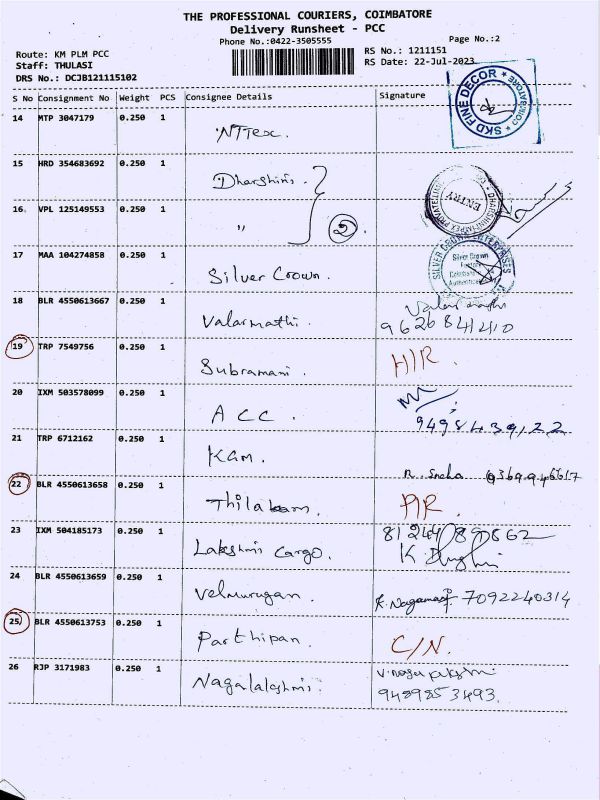 THE PROFESSIONAL COURIERS, COIMBATORE
Delivery Runsheet - PCC
Phone No.:0422-3505555
Page No.:2
Route: KM PLM PCC
RS No.: 1211151
Staff: THULASI
RS Date: 22-Jul-2023
DRS No.: DCJB121115102
S No Consignment No Weight PCS Consignee Details Signature
SKD FINE DECOR * COIMBATORE *
14 MTP 3047179 0.250 1
NTTex.
15 HRD 354683692 0.250 1
Dharshini.
ENTRY
16 VPL 125149553 0.250 1
" 2
17 MAA 104274858 0.250 1
Silver Crown.
SILVER CROWN ENTERPRISES
Silver Crown
18 BLR 4550613667 0.250 1
Valarmathi.
9626841410
19 TRP 7549756 0.250 1
Subramani. H/R.
20 IXM 503578099 0.250 1
A CC. 9498439122
21 TRP 6712162 0.250 1
KGM.
R. Sneha
22 BLR 4550613658 0.250 1
Thilakam.
23 IXM 504185173 0.250 1
Lakshmi Cargo.
24 BLR 4550613659 0.250 1
Velmurugan. 7092240314
25 BLR 4550613753 0.250 1
Parthipan. C/N.
26 RJP 3171983 0.250 1
Nagalakshmi.
9489853493.